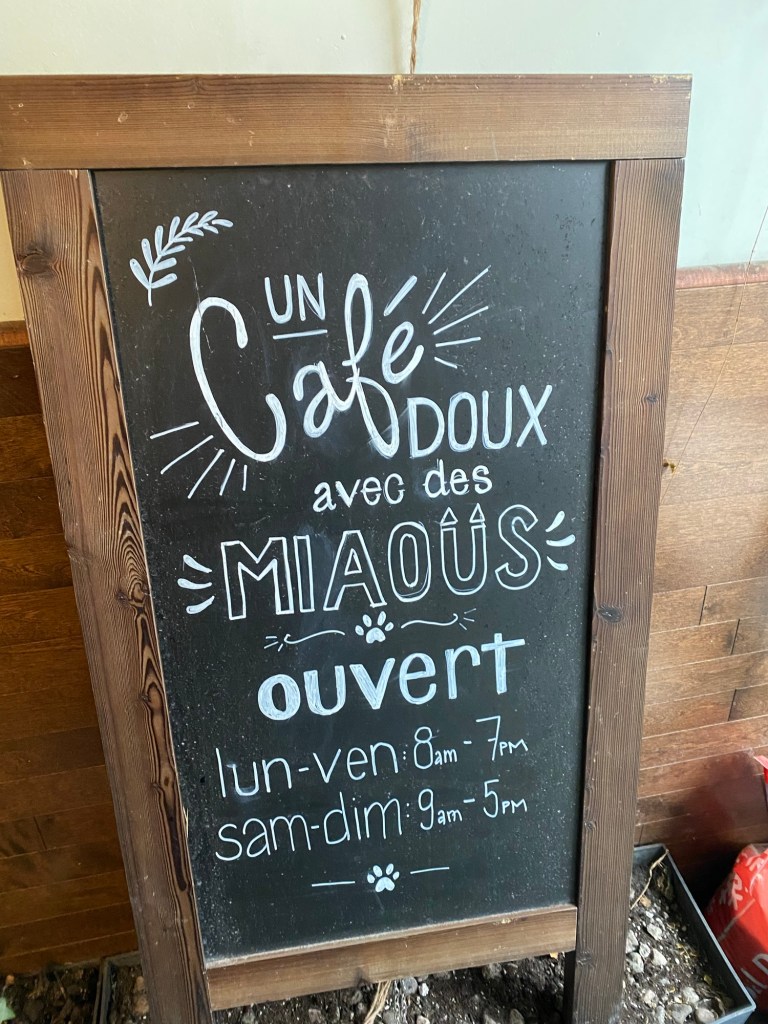 UN
Café DOUX
avec des
MIAOÛS
ouvert
lun-ven: 8am - 7PM
sam-dim: 9am - 5PM